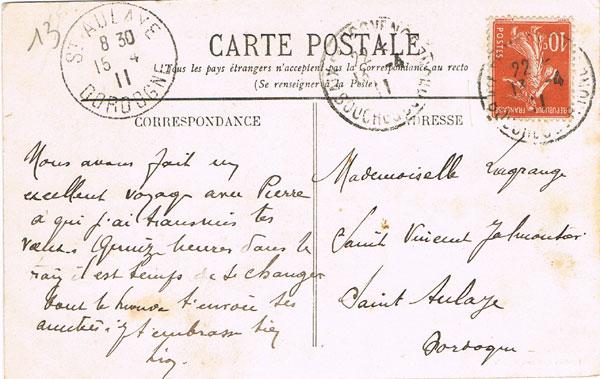 13
ST AULAYE
8 30
15 - 4
11
DORDOGNE
CARTE POSTALE
Tous les pays étrangers n'acceptent pas la Correspondance au recto
(Se renseigner à la Poste)
CORRESPONDANCE
ADRESSE
10c
POSTES
REPUBLIQUE FRANÇAISE
Nous avons fait un
excellent voyage avec Pierre
à qui j'ai transmis tes
vœux Quinze heures dans le
il est temps de changer
Tout le monde t'envoie ses
amitiés t'embrasse bien
Mademoiselle Lagrange
Saint Vincent Jalmoutier
Saint Aulaye
Dordogne